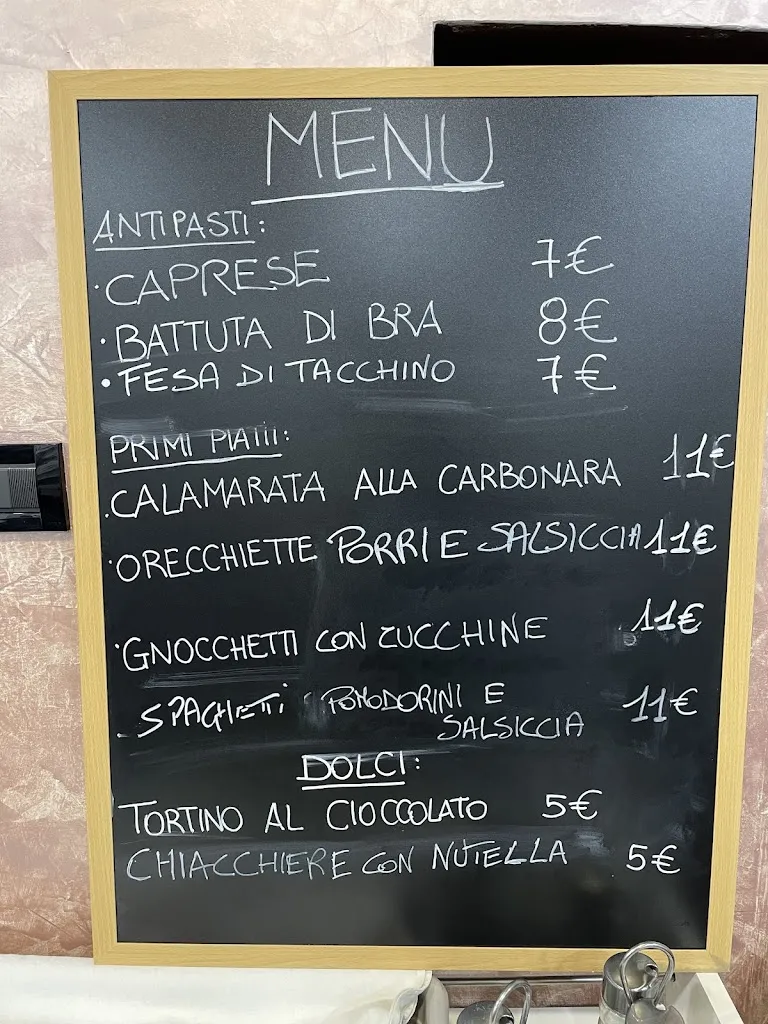 MENU
ANTIPASTI:
·CAPRESE 7€
·BATTUTA DI BRA 8€
·FESA DI TACCHINO 7€
PRIMI PIATTI:
·CALAMARATA ALLA CARBONARA 11€
·ORECCHIETTE PORRI E SALSICCIA 11€
·GNOCCHETTI CON ZUCCHINE 11€
·SPAGHETTI POMODORINI E
SALSICCIA 11€
DOLCI:
TORTINO AL CIOCCOLATO 5€
CHIACCHIERE CON NUTELLA 5€